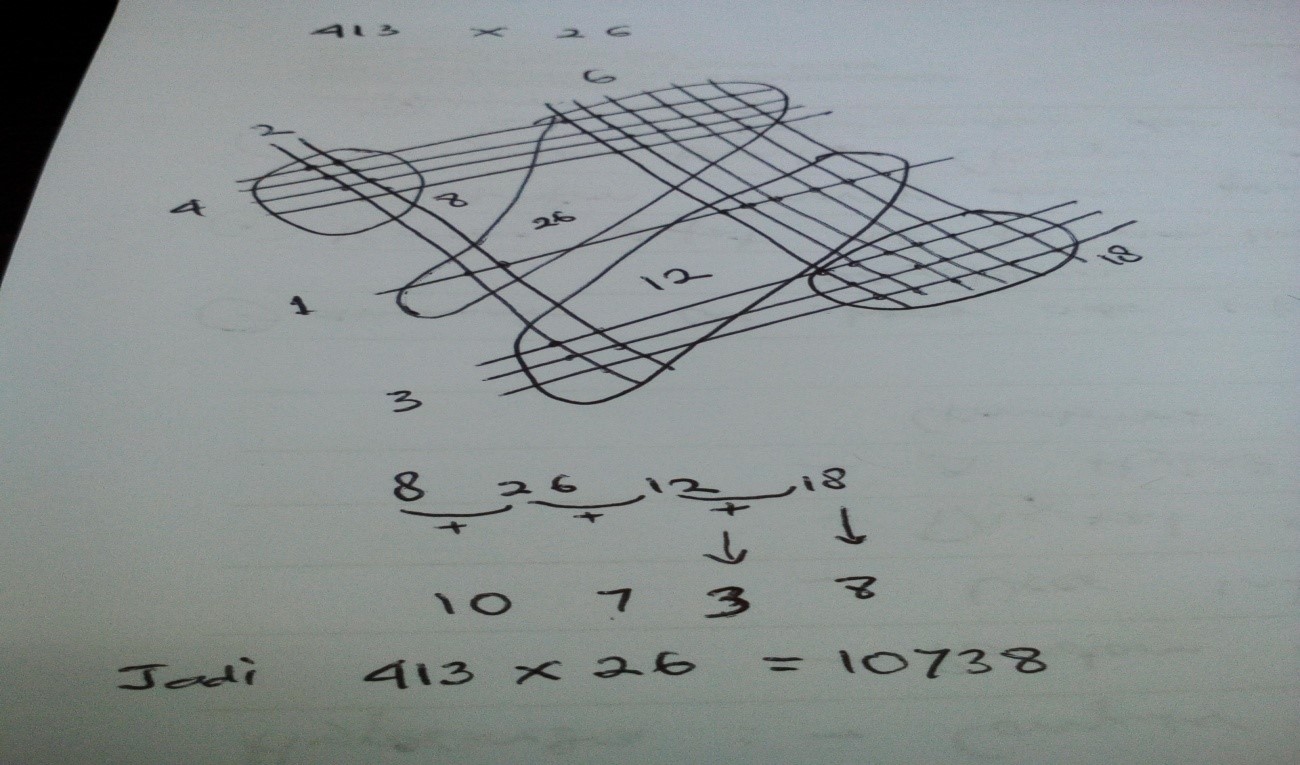 413 × 26
6
2
4
8
26
1
12
18
3
8 26 12 18
+ + +
↓ ↓
10 7 3 8
Jadi 413 × 26 = 10738